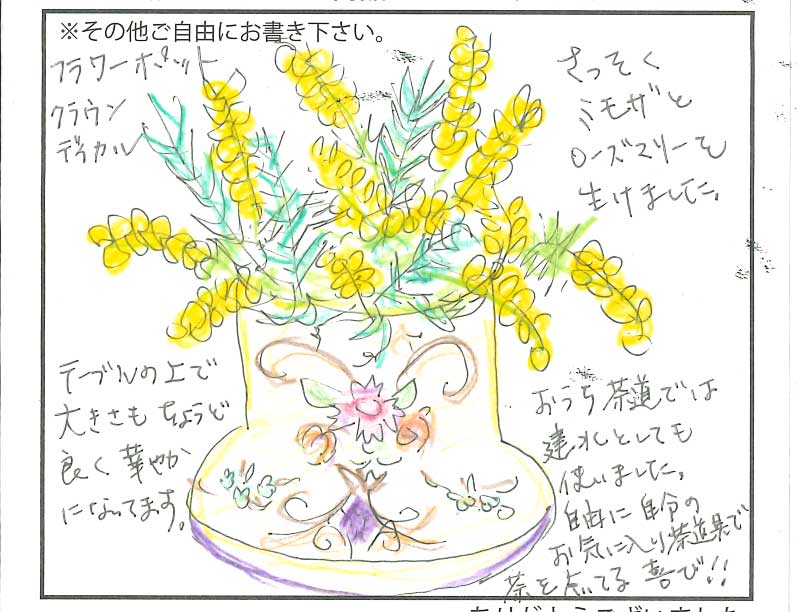 ※その他ご自由にお書き下さい。
フラワーポット
クラウン
ディカル
さっそく
ミモザと
ローズマリーを
生けました。
テーブルの上で
大きさもちょうど
良く華やか
になってます。
おうち茶道では
建水としても
使いました。
自由に自分の
お気に入り茶道具で
茶を点てる喜び!!
ありがとうございました